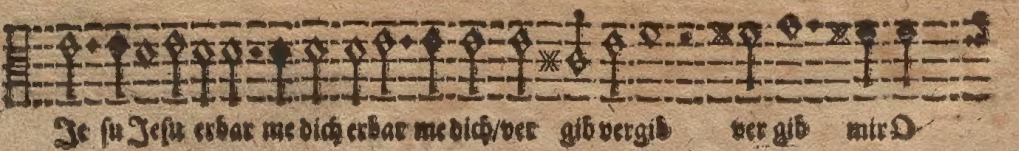 Je su Jesu erbar me dich erbar me dich/ver gib vergib ver gib mir O